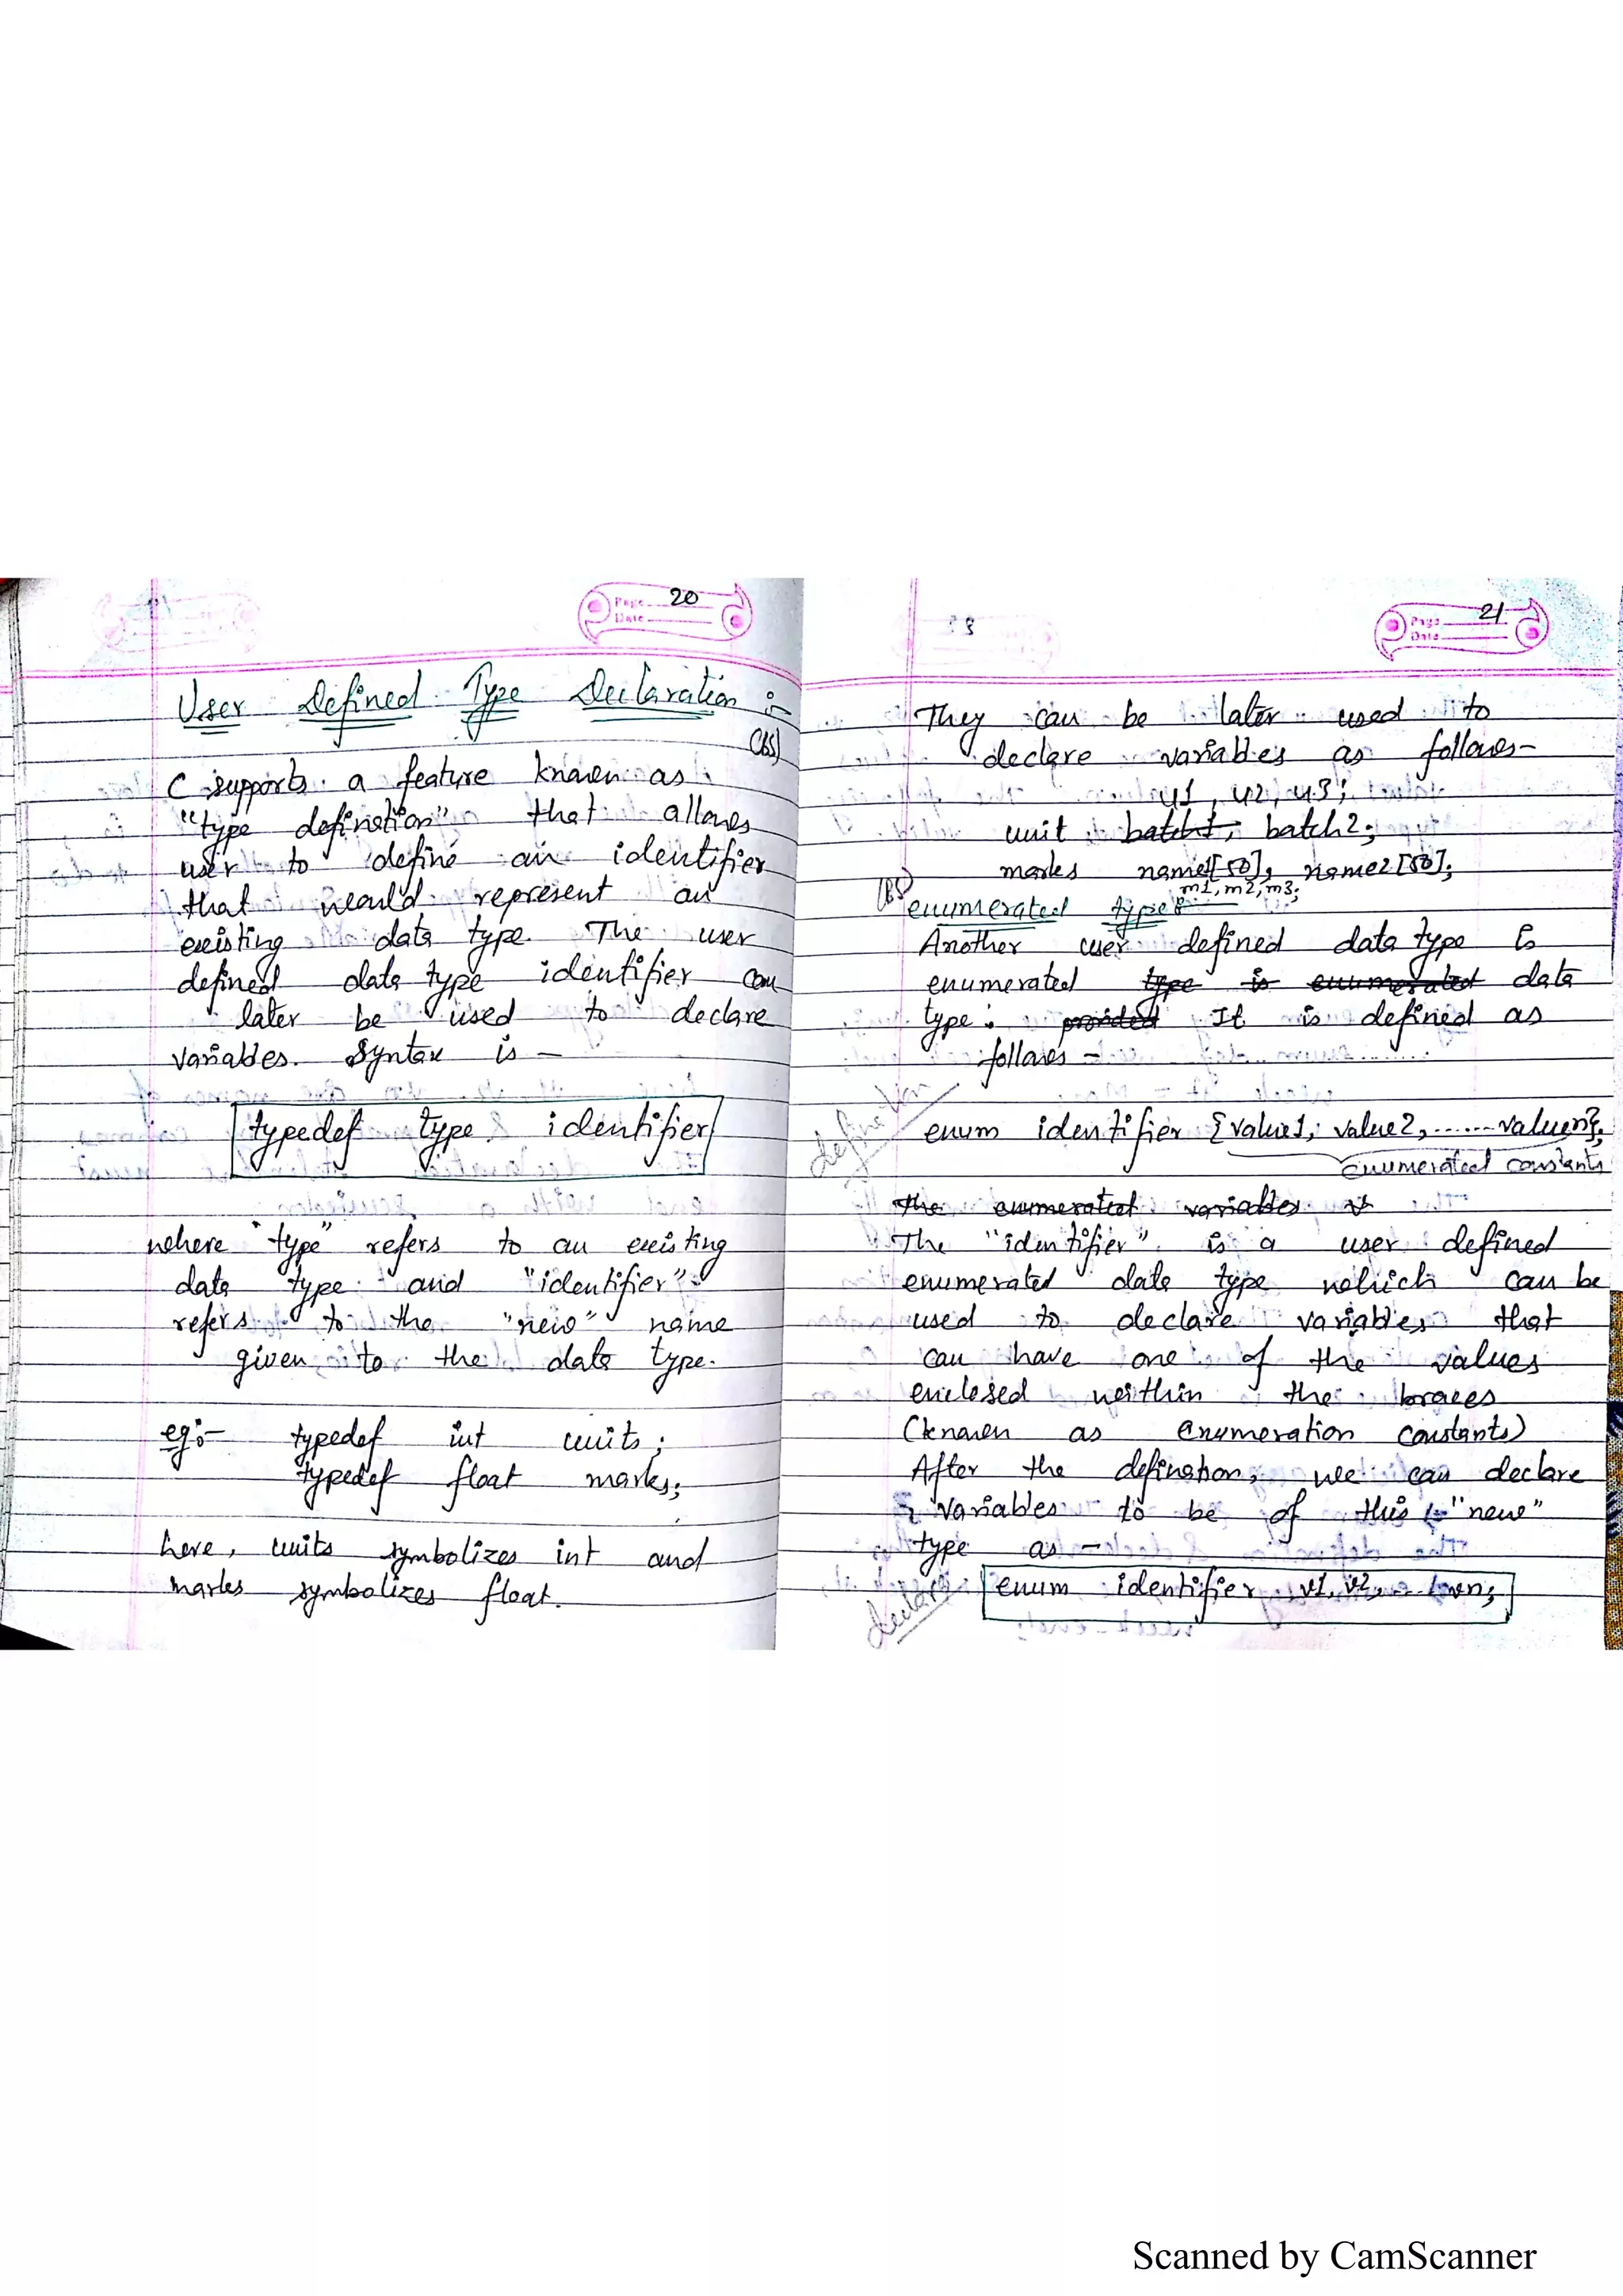 Page 20
Date
User Defined Type Declaration :-
(BS)
C supports a feature known as
"type defination" that allows
user to define an identifier
that would represent an
existing data type. The user
defined data type identifier can
later be used to declare
variables. Syntax is -
typedef type identifier
where "type" refers to an existing
data type and "identifier"
refers to the "new" name
given to the data type.
eg:- typedef int units;
typedef float marks;
here, units symbolizes int and
marks symbolizes float.
Page 21
Date
They can be later used to
declare variables as follows-
u1, u2, u3;
unit batch1, batch2;
marks name1[50], name2[50];
m1, m2, m3;
(BS)
enumerated type :-
Another user defined data type is
enumerated type is enumerated data
type. provided It is defined as
follows -
definition
enum identifier {value1, value2, ...... valuen};
enumerated constants
The enumerated variables is
The "identifier" is a user defined
enumerated data type which can be
used to declare variables that
can have one of the values
enclosed within the braces
(known as enumeration constants)
After the defination, we can declare
variables to be of this "new"
type as -
declare
enum identifier v1, v2, ... vn;
Scanned by CamScanner